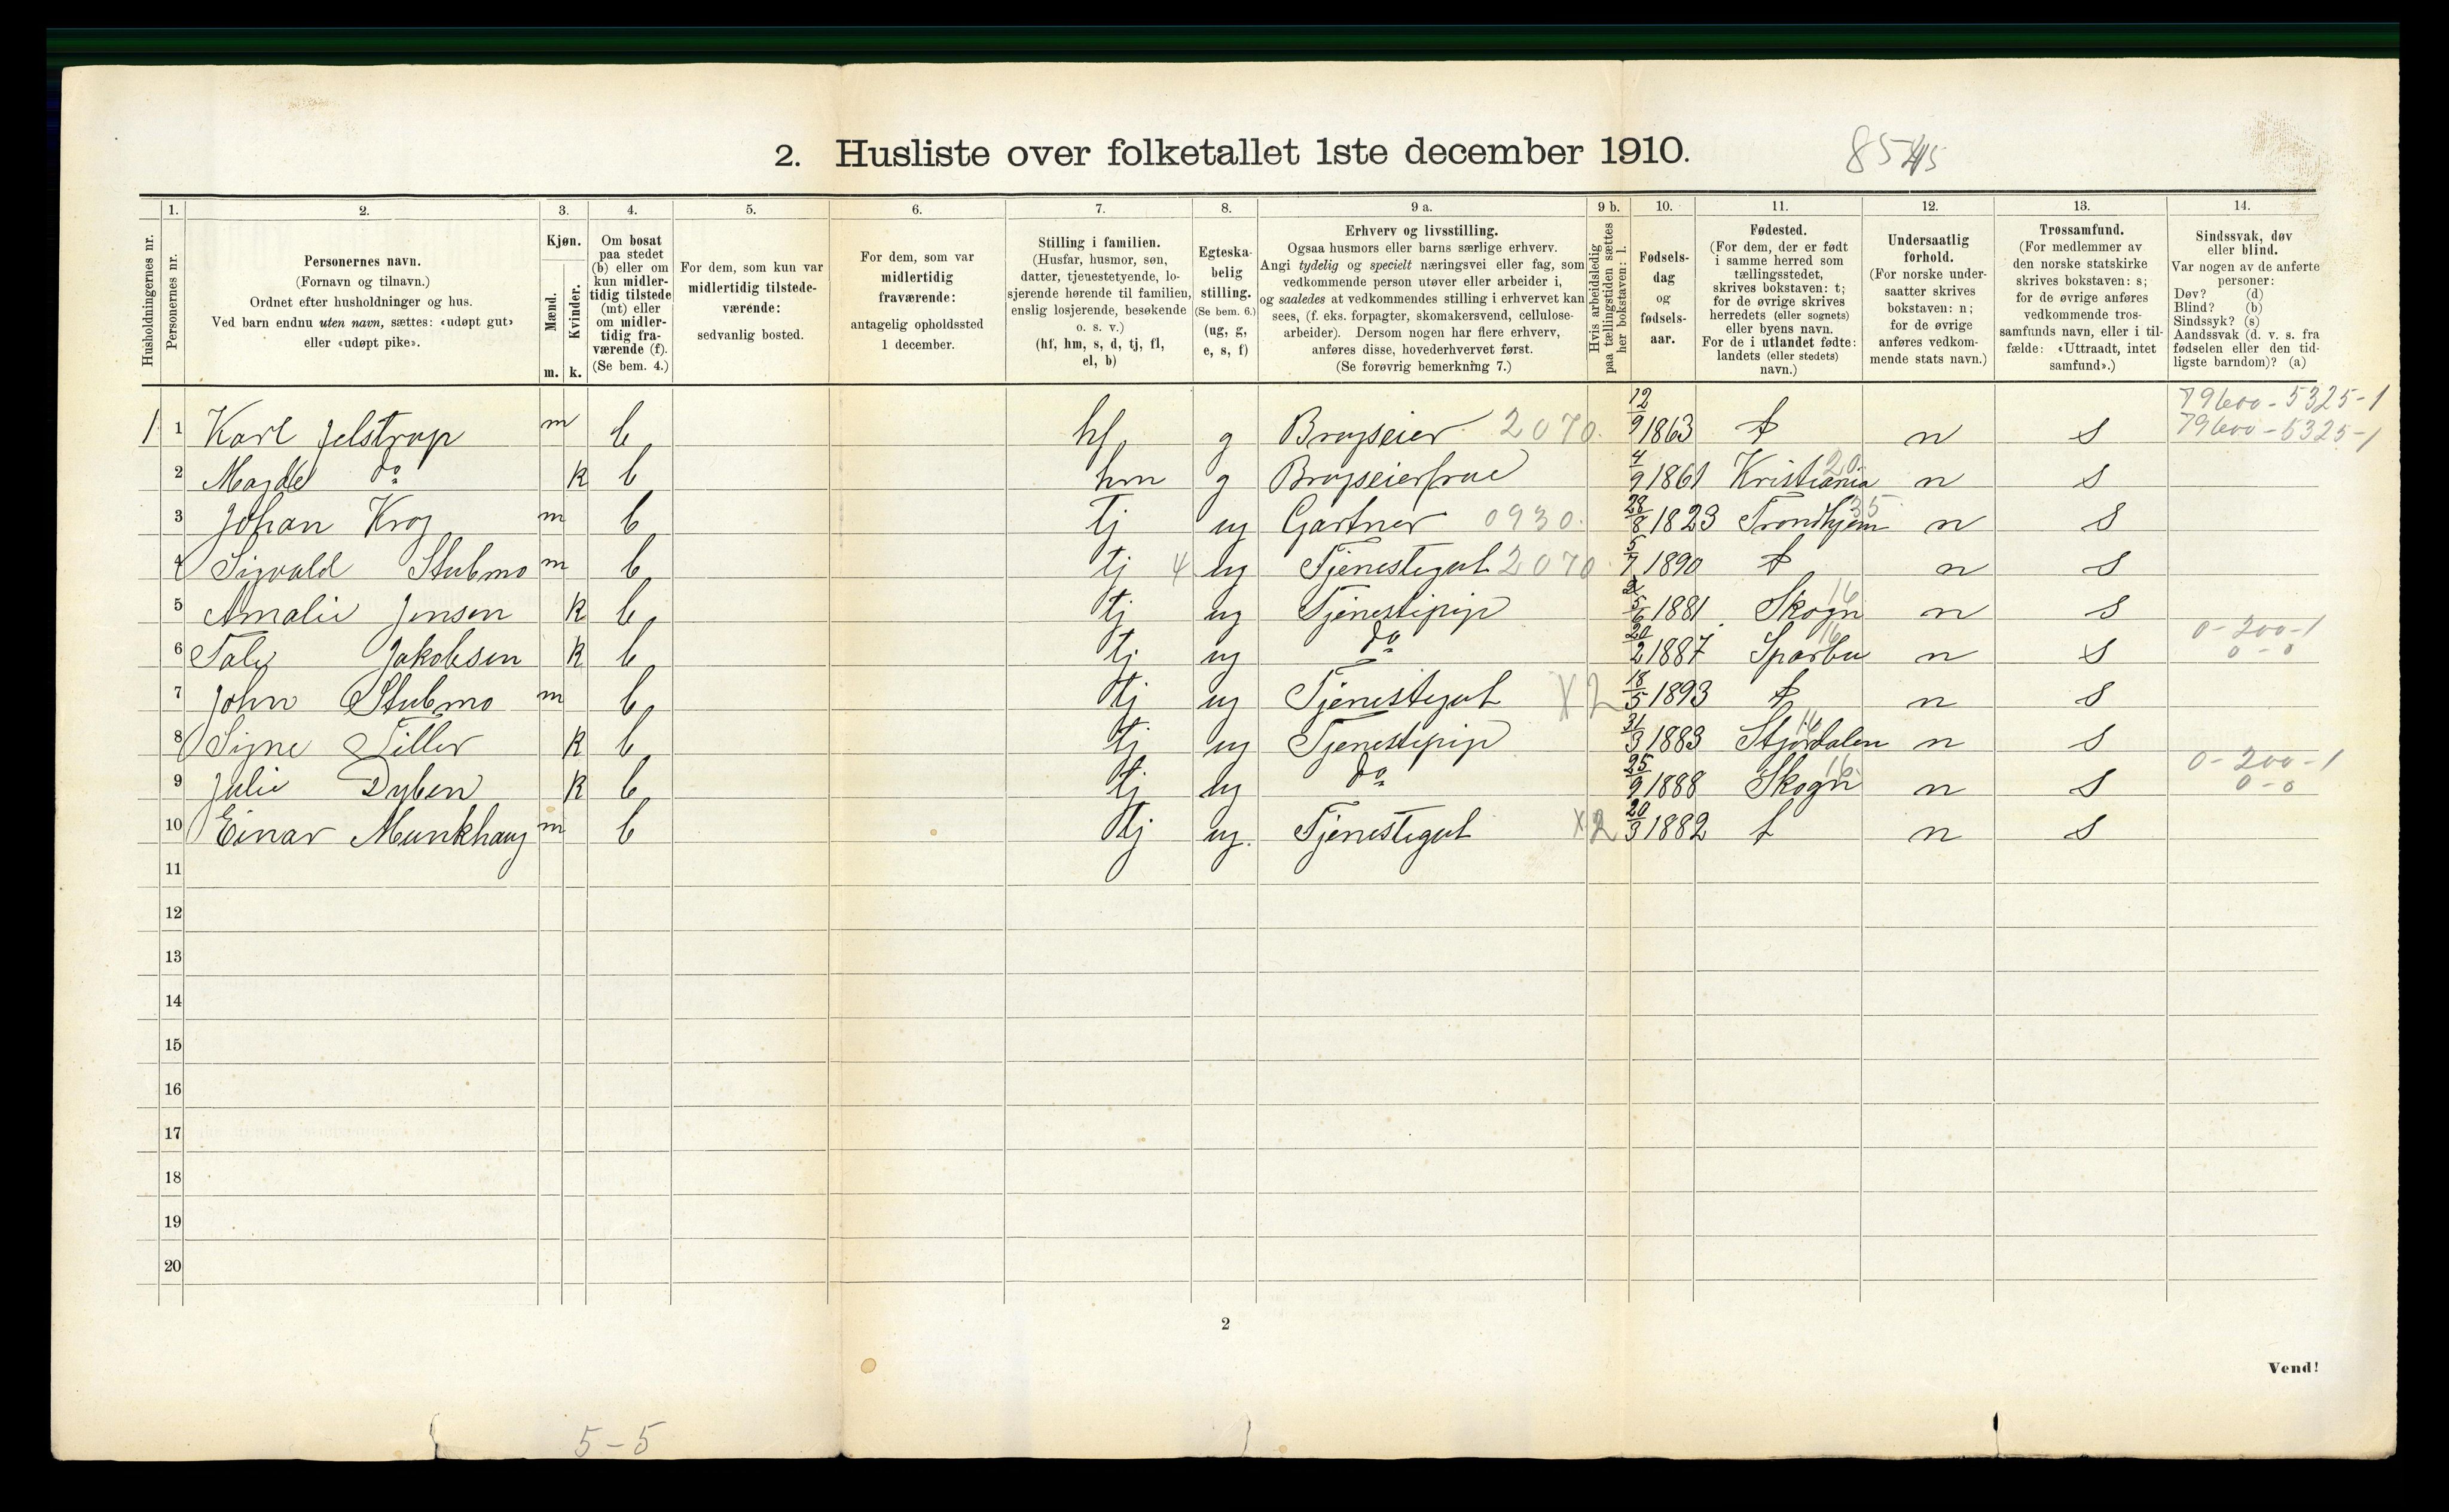 2. Husliste over folketallet 1ste december 1910.
1. 2. 3. 4. 5. 6. 7. 8. 9 a. 9 b. 10. 11. 12. 13. 14.
Husholdningernes nr.
Personernes nr.
Personernes navn.
(Fornavn og tilnavn.)
Ordnet efter husholdninger og hus.
Ved barn endnu uten navn, sættes: «udøpt gut»
eller «udøpt pike».
Kjøn.
Mænd.
Kvinder.
m. k.
Om bosat
paa stedet
(b) eller om
kun midler-
tidig tilstede
(mt) eller
om midler-
tidig fra-
værende (f).
(Se bem. 4.)
For dem, som kun var
midlertidig tilstede-
værende:
sedvanlig bosted.
For dem, som var
midlertidig
fraværende:
antagelig opholdssted
1 december.
Stilling i familien.
(Husfar, husmor, søn,
datter, tjenestetyende, lo-
sjerende hørende til familien,
enslig losjerende, besøkende
o. s. v.)
(hf, hm, s, d, tj, fl,
el, b)
Egteska-
belig
stilling.
(Se bem. 6.)
(ug, g,
e, s, f)
Erhverv og livsstilling.
Ogsaa husmors eller barns særlige erhverv.
Angi tydelig og specielt næringsvei eller fag, som
vedkommende person utøver eller arbeider i,
og saaledes at vedkommendes stilling i erhvervet kan
sees, (f. eks. forpagter, skomakersvend, cellulose-
arbeider). Dersom nogen har flere erhverv,
anføres disse, hovederhvervet først.
(Se forøvrig bemerkning 7.)
Hvis arbeidsledig
paa tællingstiden sættes
her bokstaven: l.
Fødsels-
dag
og
fødsels-
aar.
Fødested.
(For dem, der er født
i samme herred som
tællingsstedet,
skrives bokstaven: t;
for de øvrige skrives
herredets (eller sognets)
eller byens navn.
For de i utlandet fødte:
landets (eller stedets)
navn.)
Undersaatlig
forhold.
(For norske under-
saatter skrives
bokstaven: n;
for de øvrige
anføres vedkom-
mende stats navn.)
Trossamfund.
(For medlemmer av
den norske statskirke
skrives bokstaven: s;
for de øvrige anføres
vedkommende tros-
samfunds navn, eller i til-
fælde: «Uttraadt, intet
samfund».)
Sindssvak, døv
eller blind.
Var nogen av de anførte
personer:
Døv? (d)
Blind? (b)
Sindssyk? (s)
Aandssvak (d. v. s. fra
fødselen eller den tid-
ligste barndom)? (a)
79600-5325-1
1 1 Karl Jelstrup m b hf g Brugseier 2070 12/9 1863 t n s 79600-5325-1
2 Magda do k b hm g Brugseierfrue 4/9 1861 Kristiania 20 n s
3 Johan Krog m b tj ug Gartner 0930 28/8 1823 Trondhjem 35 n s
4 Sigvald Stubmo m b tj 4 ug Tjenestegut 2070 5/7 1890 t n s
5 Amalie Jensen k b tj ug Tjenestepige 5/6 1881 Skogn 16 n s
0-200-1
6 Jakobsen k b tj ug do 20/2 1887 Sparbu 16 n s 0-0
7 John Stubmo m b tj ug Tjenestegut X 2 18/5 1893 t n s
8 Signe Tiller k b tj ug Tjenestepige 31/3 1883 Stjørdalen 16 n s
0-200-1
9 Julie Dyben k b tj ug do 25/9 1888 Skogn 16 n s 0-0
10 Einar Munkhaug m b tj ug. Tjenestegut X 2 20/3 1882 t n s
11
12
13
14
15
16
17
18
19
20
2
Vend!
5-5